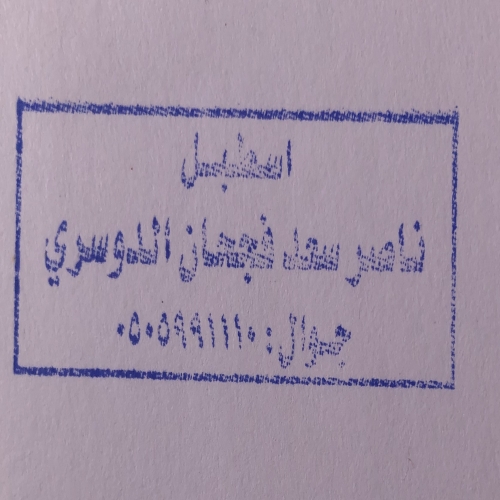 اسطبل
ناصر سعد فجحان الدوسري
جوال: ٠٥٠٥٩٩١١١٠